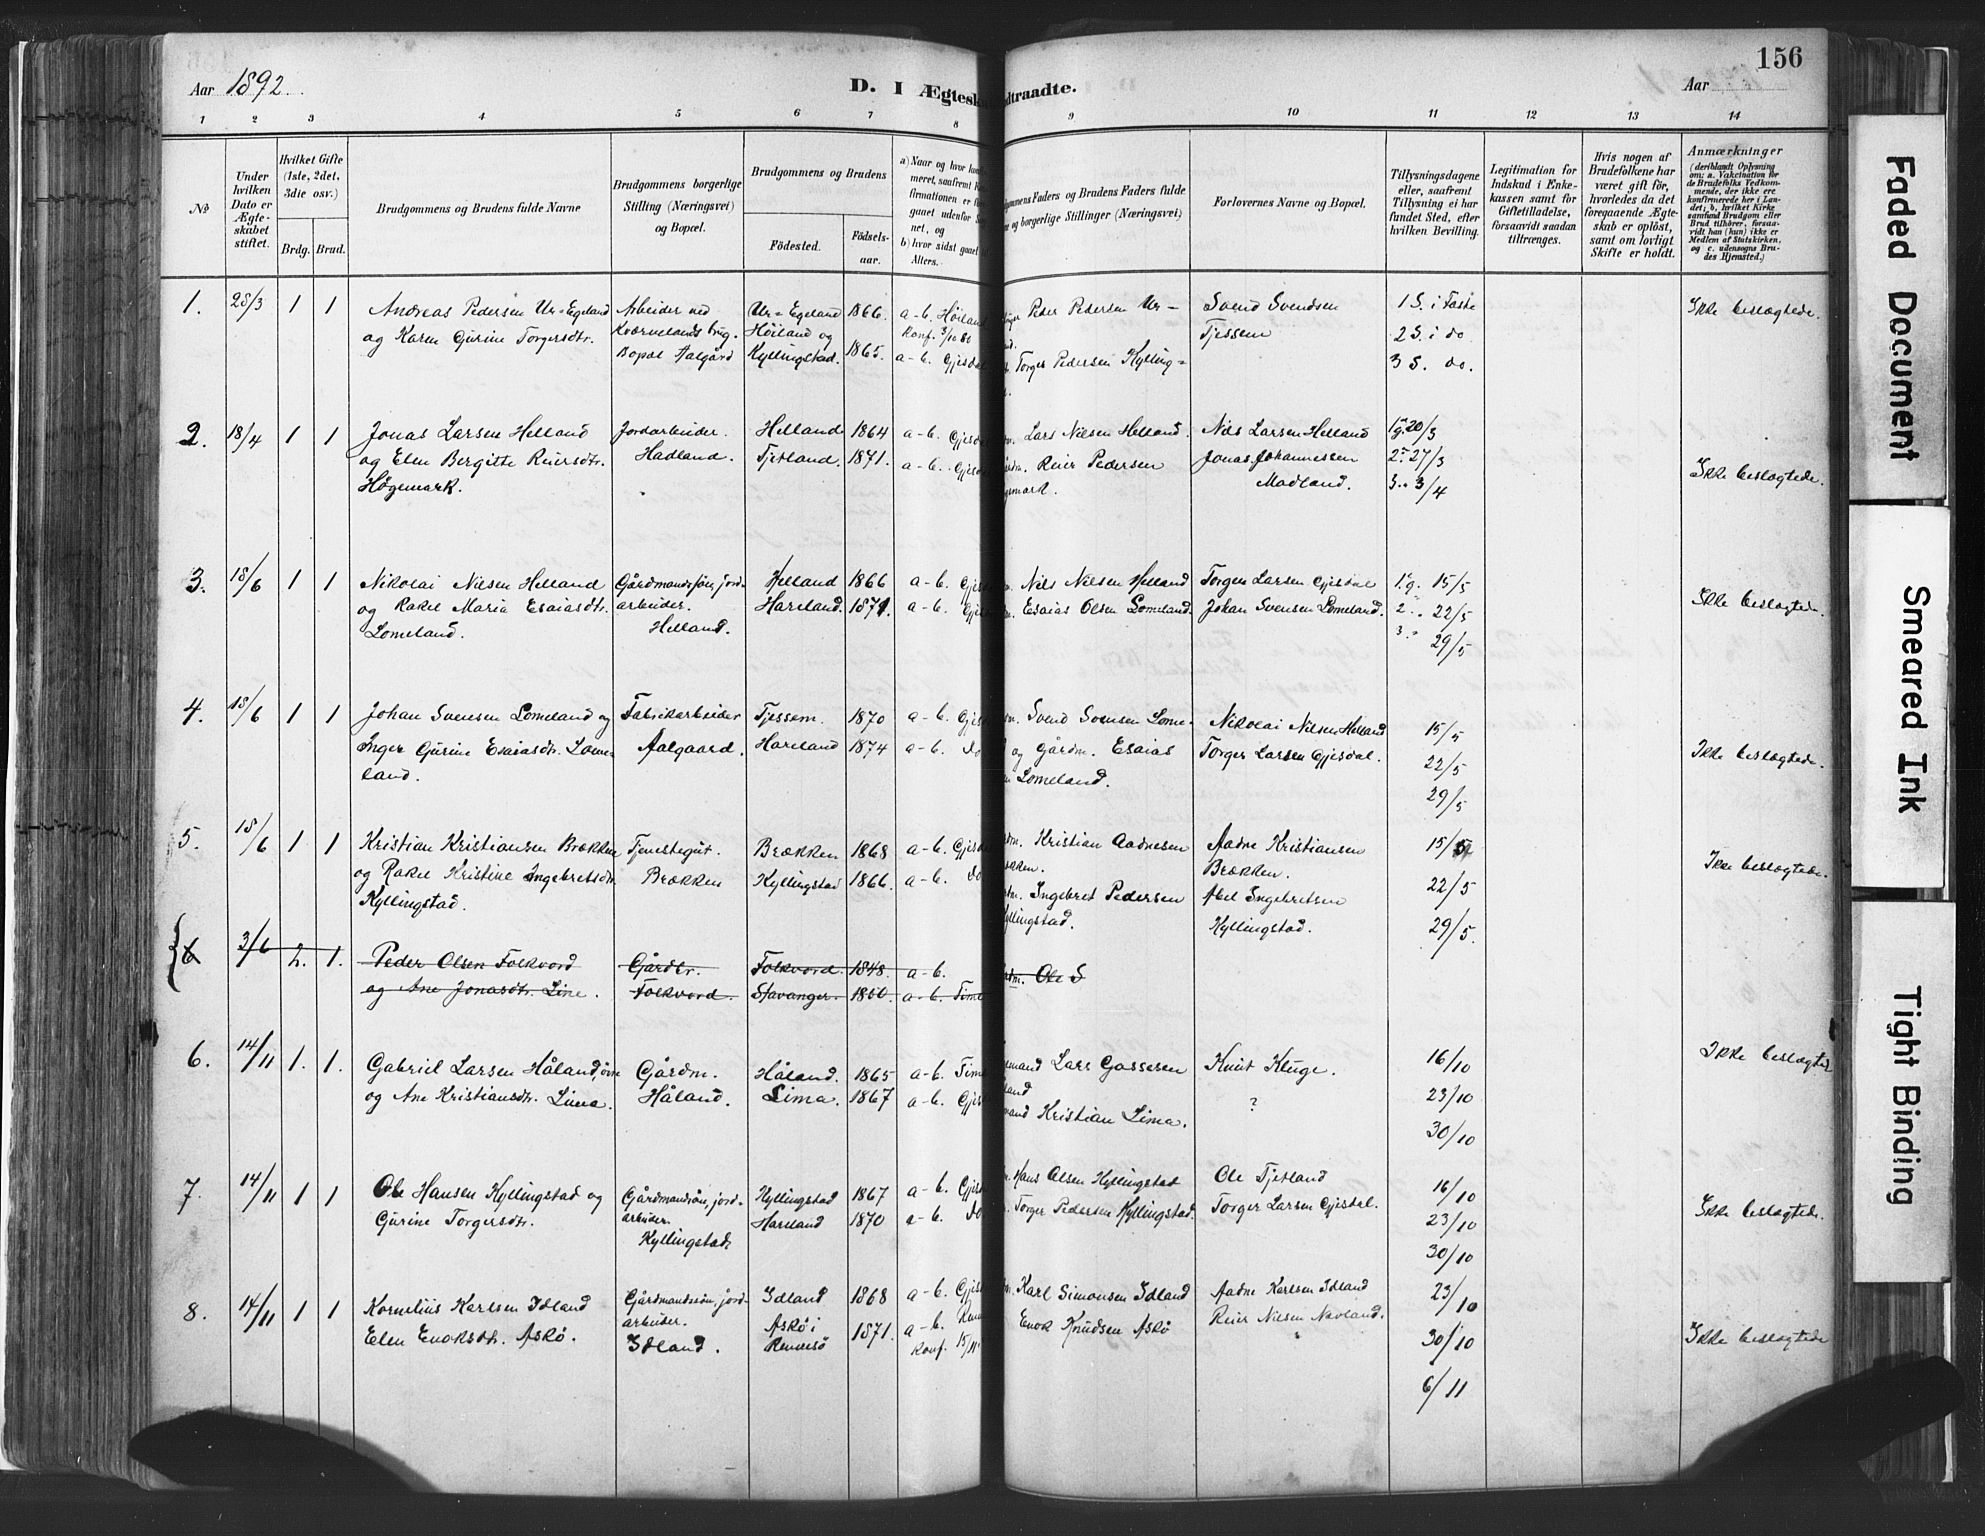 156
Aar 1892.
D. I Ægteska
dtraadte.
Aar
1 2 3 4 5 6 7 8 9 10 11 12 13 14
№
Under hvilken Dato er Ægteskabet stiftet.
Hvilket Gifte (1ste, 2det, 3die osv.)
Brdg. Brud.
Brudgommens og Brudens fulde Navne
Brudgommens borgerlige Stilling (Næringsvei) og Bopæl.
Brudgommens og Brudens
Fødested. Fødselsaar.
a) Naar og hvor konfi
meret, saafremt K
firmationen er fo
gaaet udenfor So
net, og
b) hvor sidst gaaet
Alters.
gommens Faders og Brudens Faders fulde
e og borgerlige Stillinger (Næringsvei)
Forlovernes Navne og Bopæl.
Tillysningsdagene eller, saafremt Tillysning ei har fundet Sted, efter hvilken Bevilling.
Legitimation for Indskud i Enkekassen samt for Giftetilladelse, forsaavidt saadan tiltrænges.
Hvis nogen af Brudefolkene har været gift før, hvorledes da det foregaaende Ægteskab er opløst, samt om lovligt Skifte er holdt.
Anmærkninger
(deriblandt Oplysning om: a. Vakcination for de Brudefolks Vedkommende, der ikke ere konfirmerede her i Landet; b. hvilket Kirkesamfund Brudgom eller Brud tilhører, forsaavidt han (hun) ikke er Medlem af Statskirken, og c. udensogns Brudes Hjemsted.)
1. 28/3 1 1 Andreas Pedersen Ur-Egeland Arbeider ved Ur-Egeland 1866. a-b. Höiland Peder Pedersen Ur- Svend Svendsen 1 S. i Faste Ikke beslægtede.
og Karen Gurine Torgersdtr. Kværnelands brug. Höiland og Konf. 3/10 80 Tjessem 2 S. i do
Bopæl Aalgård Kyllingstad. 1865. a-b. Gjesdal Torger Pedersen Kylling= 3 S. do.
2. 18/4 1 1 Jonas Larsen Helland Jordarbeider. Helland 1864 a-b. Gjesdal Lars Nielsen Helland. Nils Larsen Helland 1 g. 20/3
og Elen Bergitte Reiersdtr. Hadland. Tjetland. 1871. a-b. Gjesd Reier Pedersen Jonas Johannessen 2 " 27/3 Ikke beslægtede.
Høgemark. gemark. Madland. 3 " 3/4
3. 18/6 1 1 Nikolai Nilsen Helland Gårdmandssøn, jord- Helland 1866 a-b. Gjesd Nils Nilsen Helland Torger Larsen Gjesdal 1 g. 15/5
og Rakel Maria Esaiasdtr. arbeider. Hareland. 1871. a-b. Gj Esaias Olsen Lomeland. Johan Svensen Lomeland. 2 " 22/5 Ikke beslægtede.
Lomeland. Helland. 3 " 29/5
4. 18/6 1 1 Johan Svensen Lomeland og Fabrikarbeider Tjessem. 1870 a-b. Gjesd Svend Svensen Lome- Nikolai Nilsen Helland 15/5
Inger Gurine Esaiasdtr. Lome- Aalgaard. Hareland 1874 a-b. do og gårdm. Esaias Torger Larsen Gjesdal. 22/5 Ikke beslægtede.
land. Lomeland. 29/5
5. 18/6 1 1 Kristian Kristiansen Brækken Tjenestegut. Brækken 1868 a-b. Gjesd Kristian Aadnesen Aadne Kristiansen 15/5 Ikke beslægtede.
og Rakel Kristine Ingebretsdtr. Brækken Kyllingstad 1866. a-b. do Ingebret Pedersen Brækken. 22/5
Kyllingstad. yllingstad. Abel Ingebretsen 29/5.
Kyllingstad.
6 3/6 2. 1. Peder Olsen Folkvord Gårdbr. Folkvord. 1848. a-b. Ole S
og Ane Jonasdtr. Line. Folkvord. Stavanger. 1850. a-b. Time
6. 14/11 1. 1. Gabriel Larsen Håland, øvre Gårdm. Håland. 1865 a-b. Time mand Lars Gassesen Knut Kluge. 16/10 Ikke beslægtede
og Ane Kristiansdtr. Lima. Håland. Lima. 1867 a-b. Gjesd land ? 23/10
mand Kristian Lima. 30/10
7. 14/11 1 1 Ole Hansen Kyllingstad og Gårdmandssøn, jord- Kyllingstad 1867 a-b. Gjesd Hans Olsen Kyllingstad Ole Tjetland 16/10
Gurine Torgersdtr. arbeider. Hareland 1870 a-b. do Torger Pedersen Kyllingstad. Torger Larsen Gjesdal. 23/10 Ikke beslægtede.
Kyllingstad. 30/10
8. 14/11 1 1 Kornelius Karlsen Idland Gårdmandssøn, jord- Idland 1868 a-b. Gjesd Karl Simonsen Idland Aadne Karlsen Idland 23/10
Elen Enoksdtr. Askø. arbeider. Askø i 1871. a-b. Renn Enok Knudsen Askø Reier Nilsen Navland. 30/10 Ikke beslægtede
Idland. Rennesö Konf. 15/11 6/11
Faded Document
Smeared Ink
Tight Binding